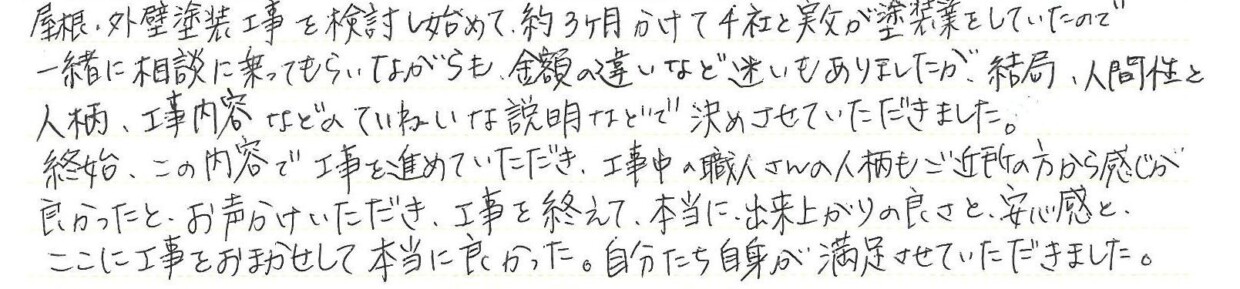 屋根・外壁塗装工事を検討し始めて、約3ヶ月かけて4社と実父が塗装業をしていたので
一緒に相談に乗ってもらいながらも、金額の違いなど迷いもありましたが、結局、人間性と
人柄、工事内容などのていねいな説明などで決めさせていただきました。
終始、この内容で工事を進めていただき、工事中の職人さんの人柄もご近所の方から感じが
良かったと、お声かけいただき、工事を終えて、本当に、出来上がりの良さと、安心感と、
ここに工事をおまかせして本当に良かった。自分たち自身が満足させていただきました。